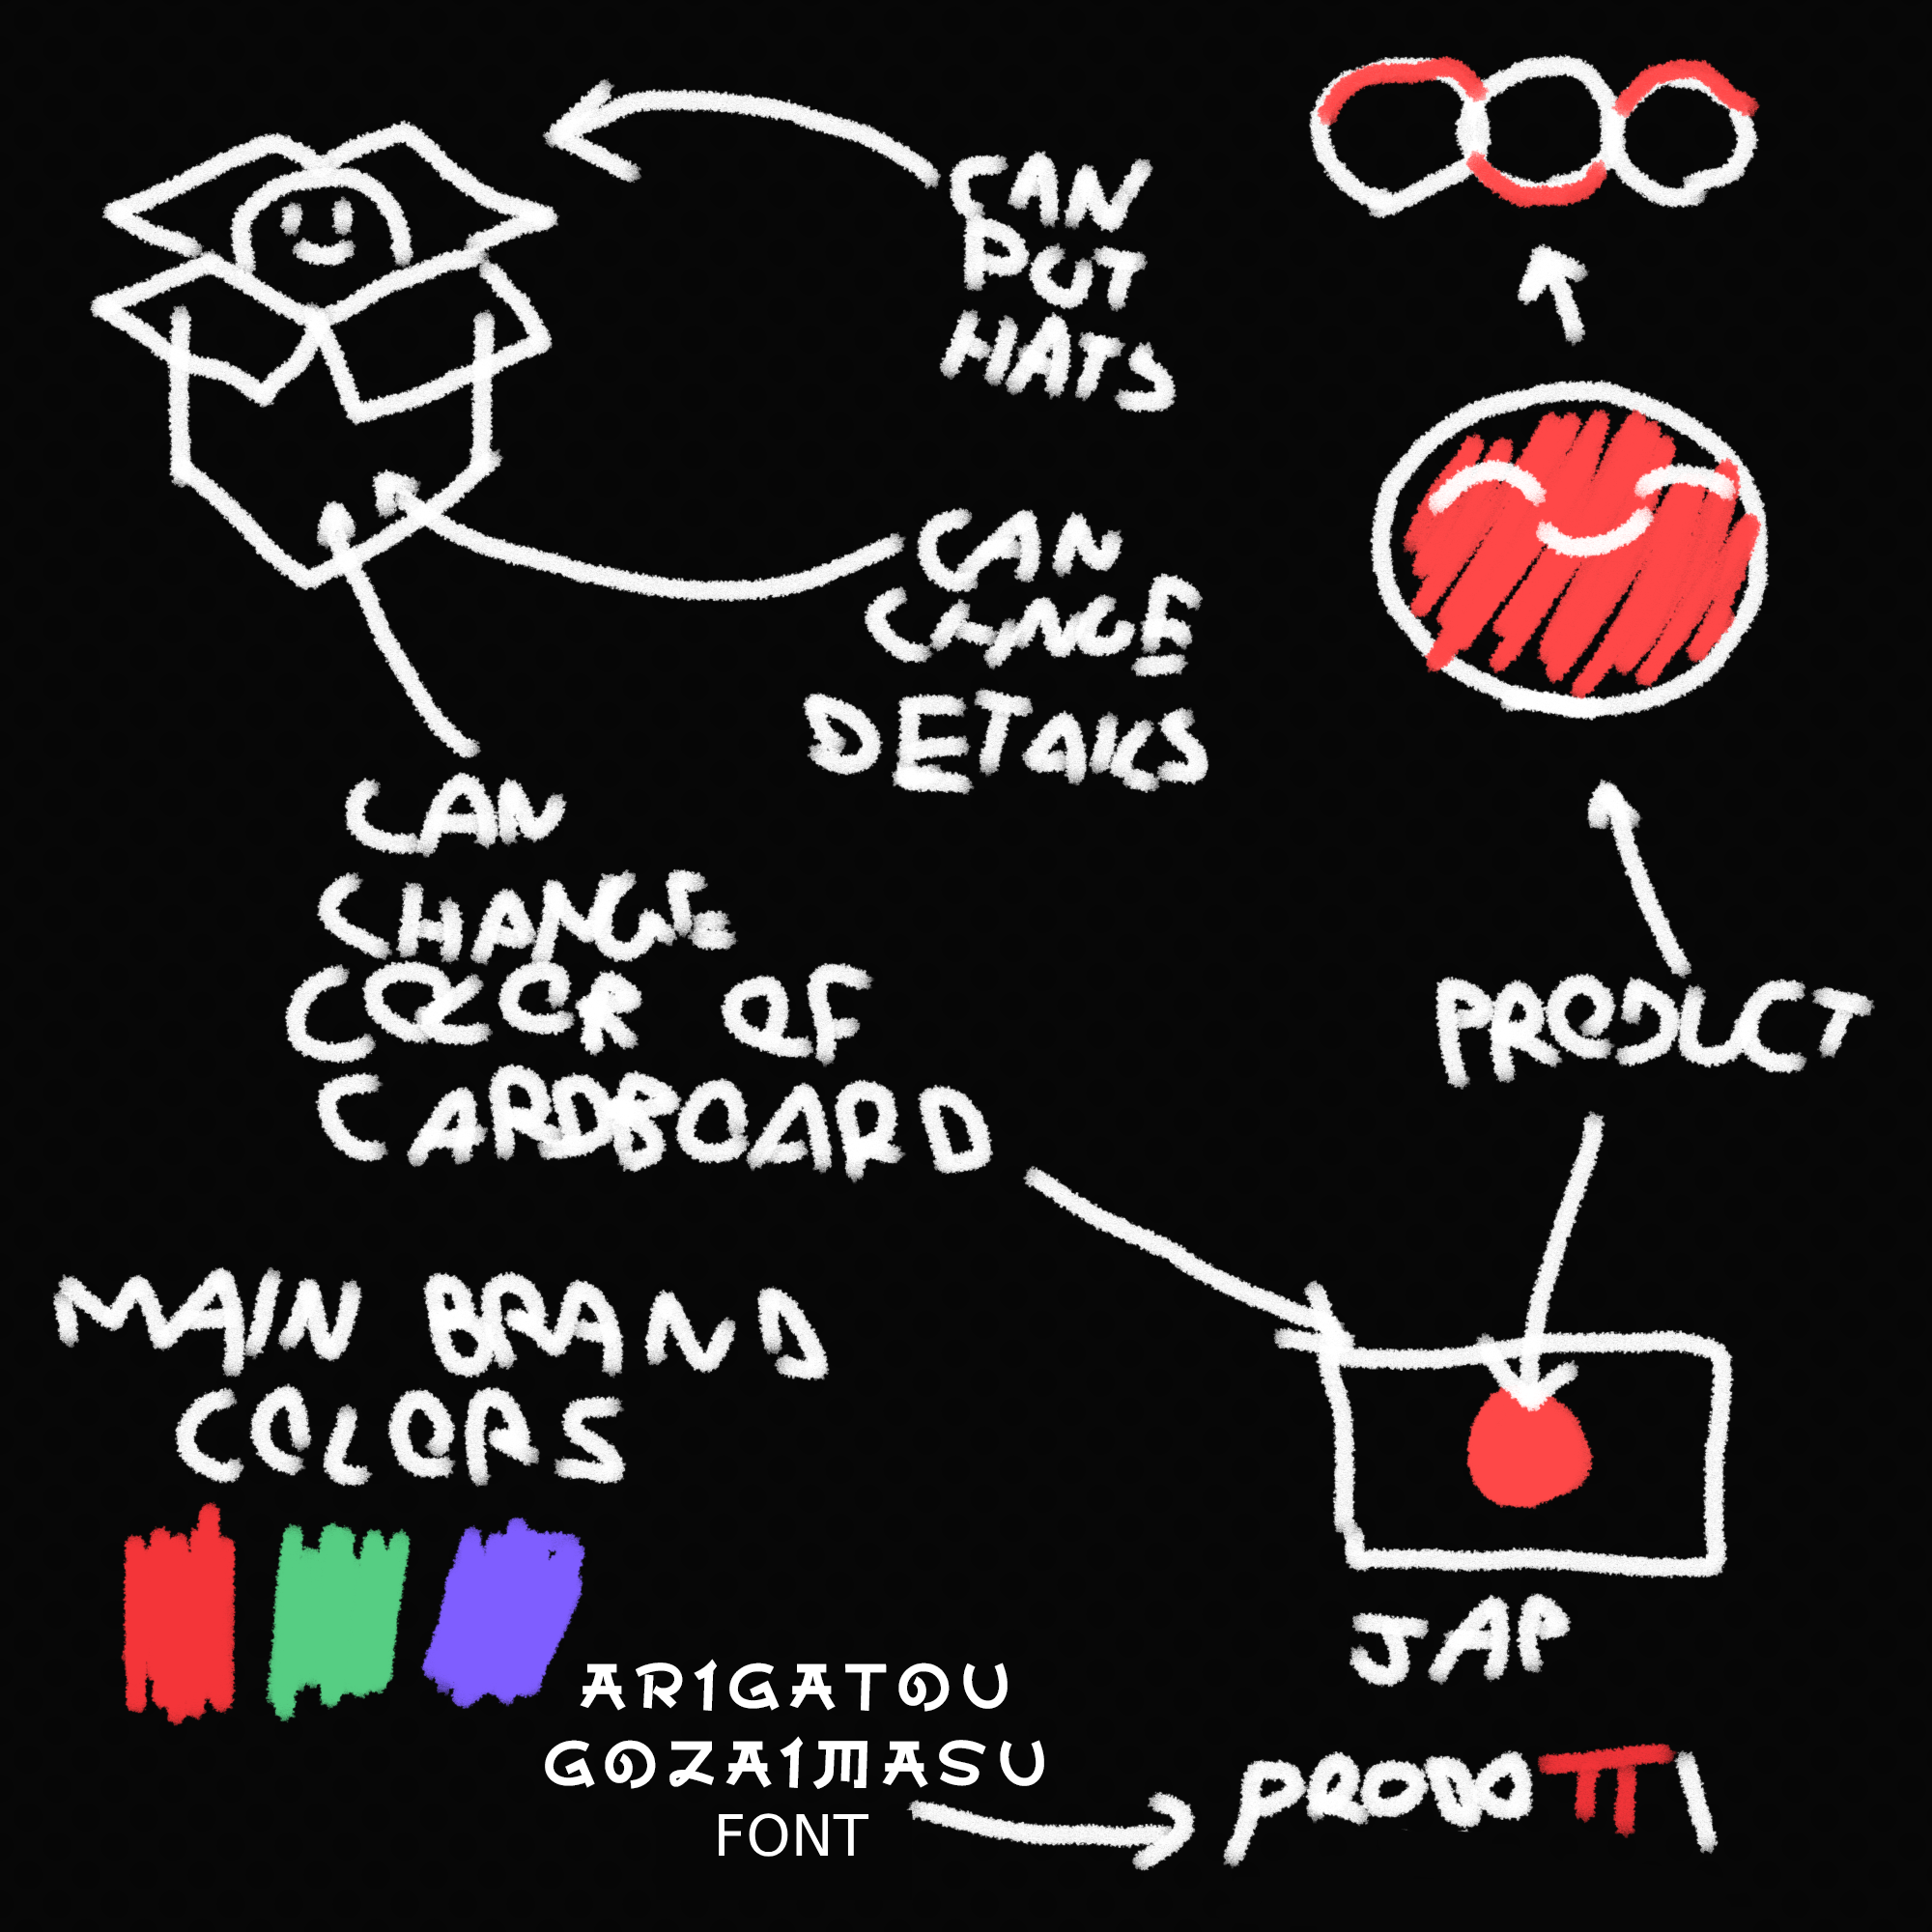 CAN
PUT
HATS
CAN
CHANGE
DETAILS
CAN
CHANGE
COLOR OF
CARDBOARD
PRODUCT
MAIN BRAND
COLORS
JAP
ARIGATOU
GOZAIMASU
FONT
PRODOTTI